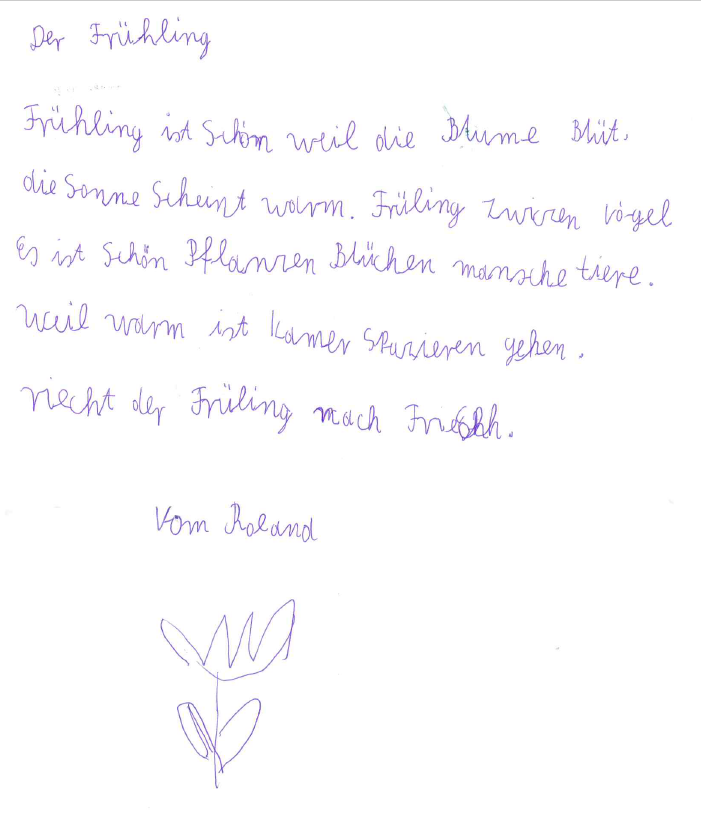 Der Frühling
Frühling ist Schön weil die Blume Blüt.
die Sonne Scheint warm. Früling zwizen vögel
Es ist Schön Pflanzen Blüchen mansche tiere.
Weil warm ist kamer Spazieren gehen.
riecht der Früling nach
Vom Roland